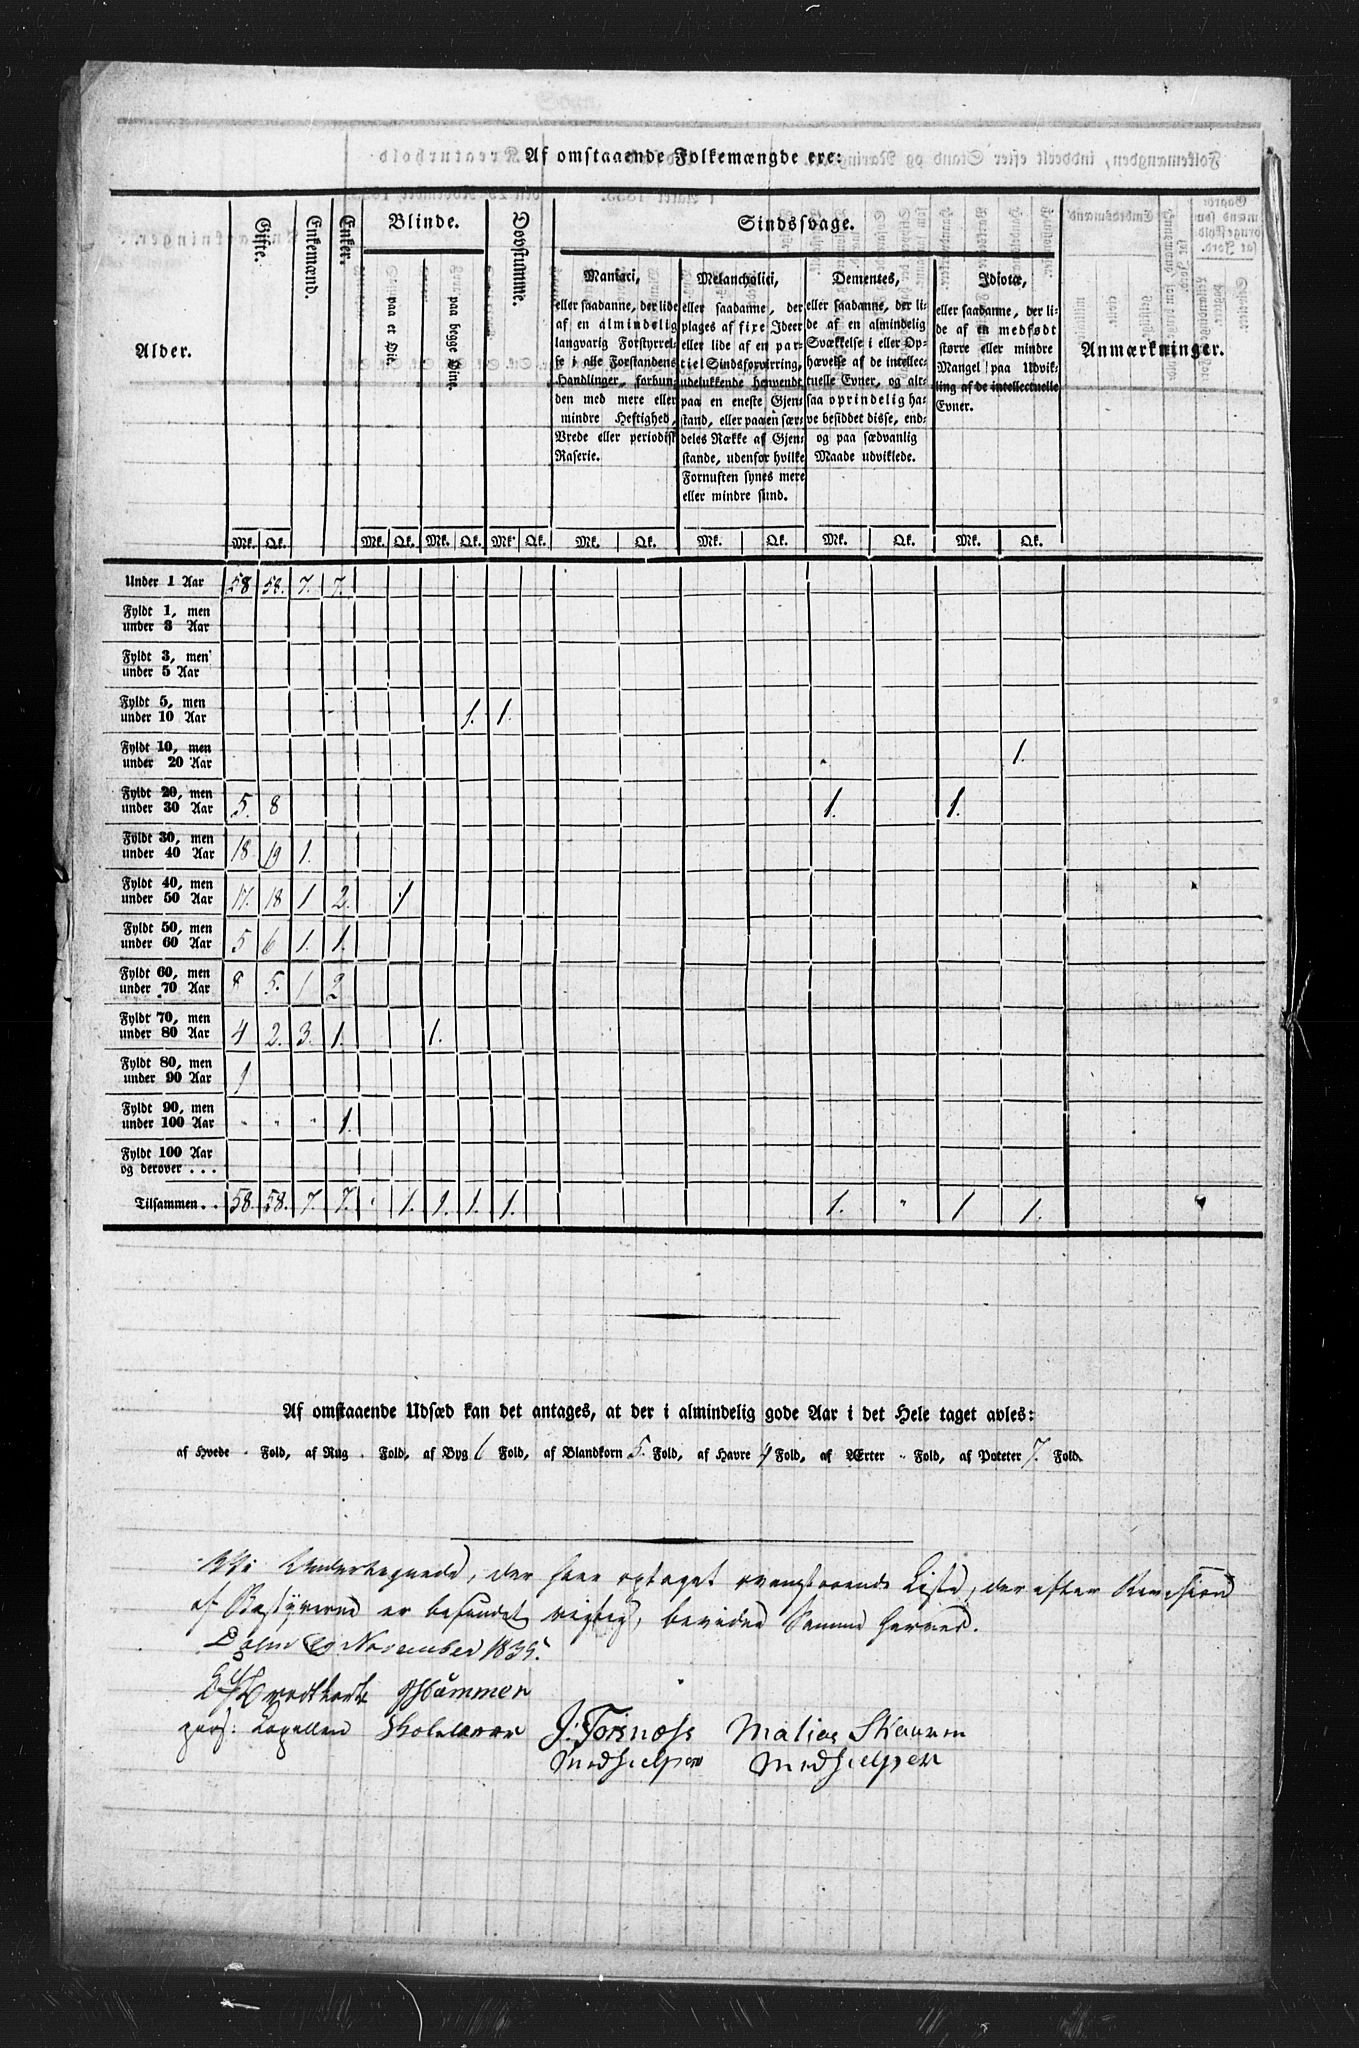 Af omstaaende Folkemængde ere:
Alder. Gifte. Enkemænd. Enker. Blinde. Døvstumme. Sindssvage. Anmærkninger.
paa et Øie. paa begge Øine.
Maniaci,
eller saadanne, der lide
af en almindelig
langvarig Forstyrrel-
se i alle Forstandens
Handlinger, forbun-
den med mere eller
mindre Heftighed,
Vrede eller periodisk
Raserie.
Melancholici,
eller saadanne, der
plages af fixe Ideer
eller lide af en par-
tiel Sindsforvirring,
udelukkende henvendt
paa en eneste Gjen-
stand, eller paa en sær-
deles Række af Gjen-
stande, udenfor hvilke
Fornuften synes mere
eller mindre sund.
Dementes,
eller saadanne, der li-
de af en almindelig
Svækkelse i eller Op-
hævelse af de intellec-
tuelle Evner, og alt-
saa oprindelig ha-
ve besiddet disse, end-
og paa sædvanlig
Maade udviklede.
Idiotæ,
eller saadanne, der li-
de af en medfødt
større eller mindre
Mangel paa Udvik-
ling af de intellectuelle
Evner.
Mk. Qk. Mk. Qk. Mk. Qk. Mk. Qk. Mk. Qk. Mk. Qk. Mk. Qk. Mk. Qk.
Under 1 Aar 58 58. 7. 7.
Fyldt 1, men
under 3 Aar
Fyldt 3, men
under 5 Aar
Fyldt 5, men
under 10 Aar 1. 1.
Fyldt 10, men
under 20 Aar 1.
Fyldt 20, men
under 30 Aar 5. 8 1. 1.
Fyldt 30, men
under 40 Aar 18. 19 1.
Fyldt 40, men
under 50 Aar 17. 18 1 2. 1
Fyldt 50, men
under 60 Aar 5 6 1. 1.
Fyldt 60, men
under 70 Aar 8 5. 1 2
Fyldt 70, men
under 80 Aar 4 2. 3. 1. 1.
Fyldt 80, men
under 90 Aar 1
Fyldt 90, men
under 100 Aar " " " 1.
Fyldt 100 Aar
og derover . . .
Tilsammen . . 58. 58. 7. 7. " 1. 1. 1. 1. 1. " 1 1.
Af omstaaende Udsæd kan det antages, at der i almindelig gode Aar i det Hele taget avles:
af Hvede " Fold, af Rug " Fold, af Byg 6 Fold, af Blandkorn 5. Fold, af Havre 4 Fold, af Ærter " Fold, af Poteter 7. Fold.
Vi Undertegnede, der have optaget ovenstaaende Liste, der efter Revision
af Bestyrerne er befunden rigtig, bevidne Samme herved.
November 1835.
Hammer
pers: Capellan Skolelærer J: Torsnæss Matias Skaaren
Medhielper Medhielper